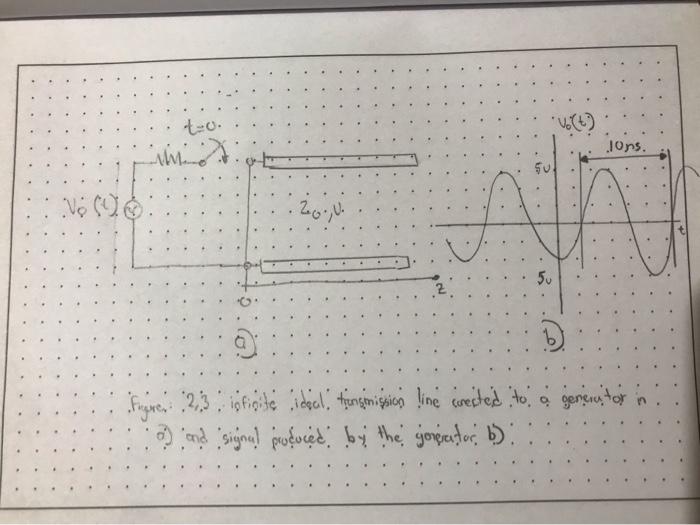 t=0
V₀(t)
10ns.
5v
V₀(t)
Z₀, V
t
5v
z
0
a)
b)
Figure: 2,3 infinite ideal transmission line conected to a generator in
a) and signal produced by the generator b)